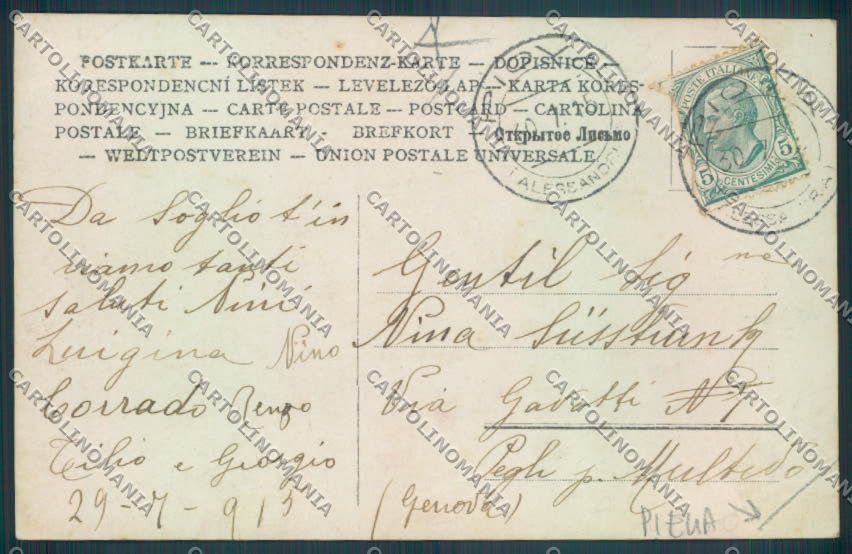 POSTKARTE — KORRESPONDENZ-KARTE — DOPISNICE —
KORESPONDENCNÍ LÍSTEK — LEVELEZŐ-LAP — KARTA KORES-
PONDENCYJNA — CARTE POSTALE — POSTCARD — CARTOLINA
POSTALE — BRIEFKAART — BREFKORT — Открытое Письмо
— WELTPOSTVEREIN — UNION POSTALE UNIVERSALE
NOVI
(ALESSANDRIA)
POSTE ITALIANE
5 CENTESIMI 5
Da Soglio t'in
viamo tanti
saluti Ninì
Luigina Nino
Corrado Renzo
Tilio e Giorgio
29-7-913
Gentil Sig na
Nina
Via Gavotti N 7
Pegli p. Multedo
(Genova)
PIEGA
CARTOLINOMANIA